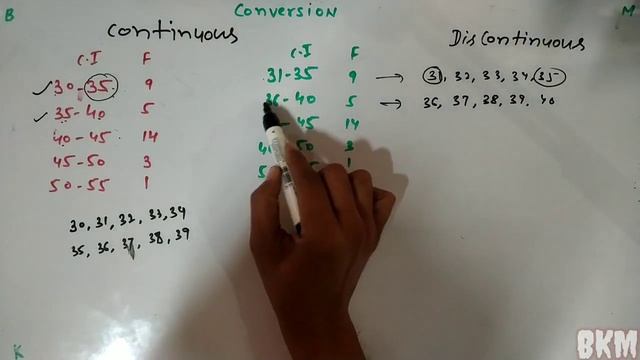 B Conversion M
Continuous
C.I F
30-35 9
35-40 5
40-45 14
45-50 3
50-55 1
30, 31, 32, 33, 34
35, 36, 37, 38, 39
C.I F
31-35 9
36-40 5
45 14
50 3
1
Discontinuous
31, 32, 33, 34, 35
36, 37, 38, 39, 40
K
BKM